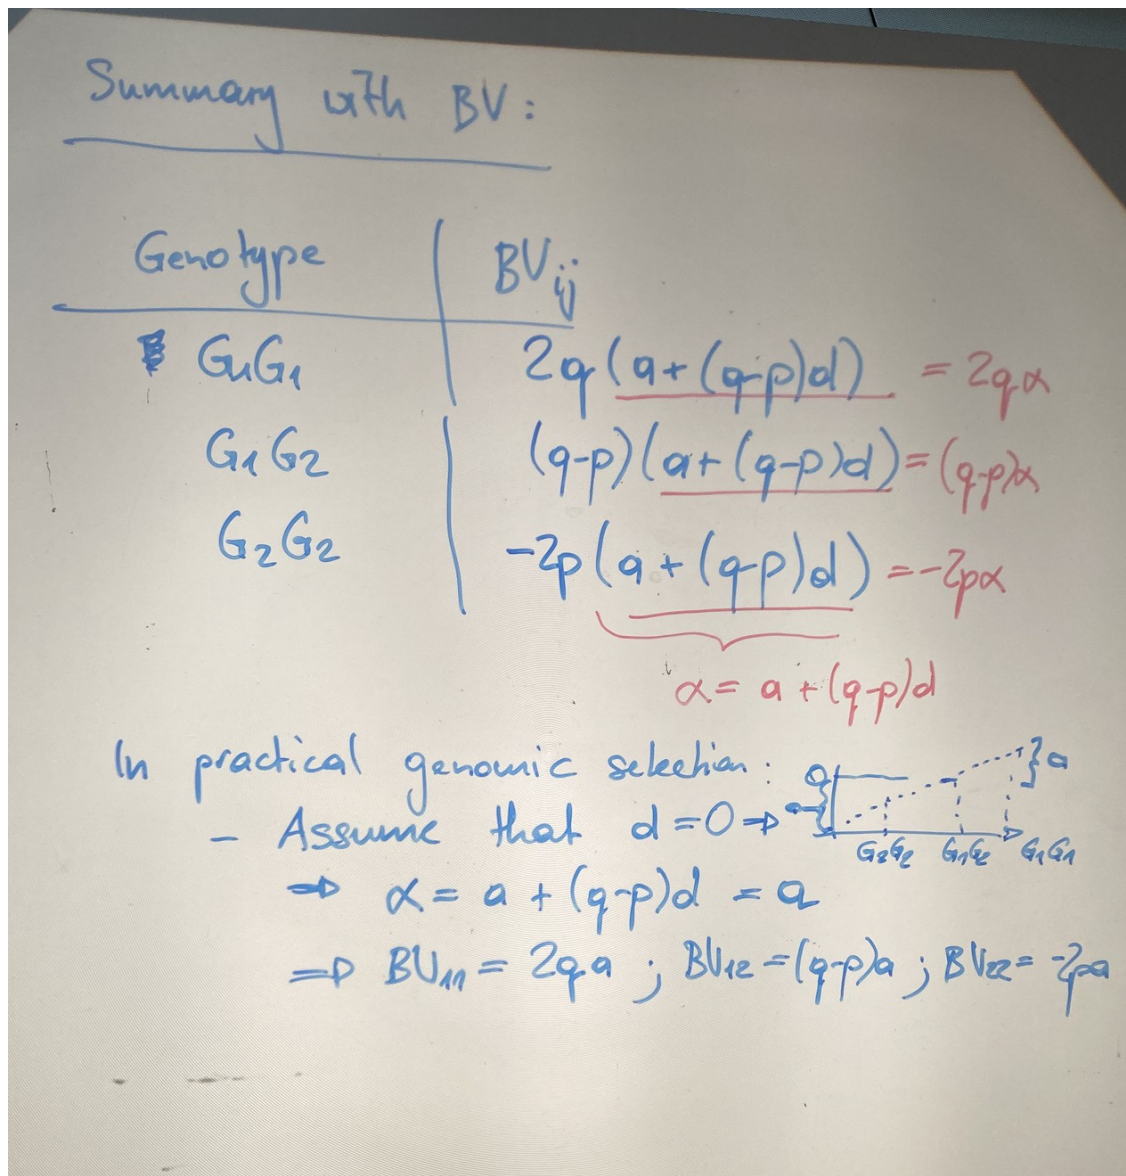 Summary with BV:
Genotype | BVij
G1G1 | 2q (a+(q-p)d) = 2qα
G1G2 | (q-p)(a+(q-p)d) = (q-p)α
G2G2 | -2p(a+(q-p)d) = -2pα
α = a+(q-p)d
In practical genomic selection:
- Assume that d=0 ⇒
a
G2G2 G1G2 G1G1
⇒ α = a + (q-p)d = a
⇒ BV11 = 2qa ; BV12 = (q-p)a ; BV22 = -2pa